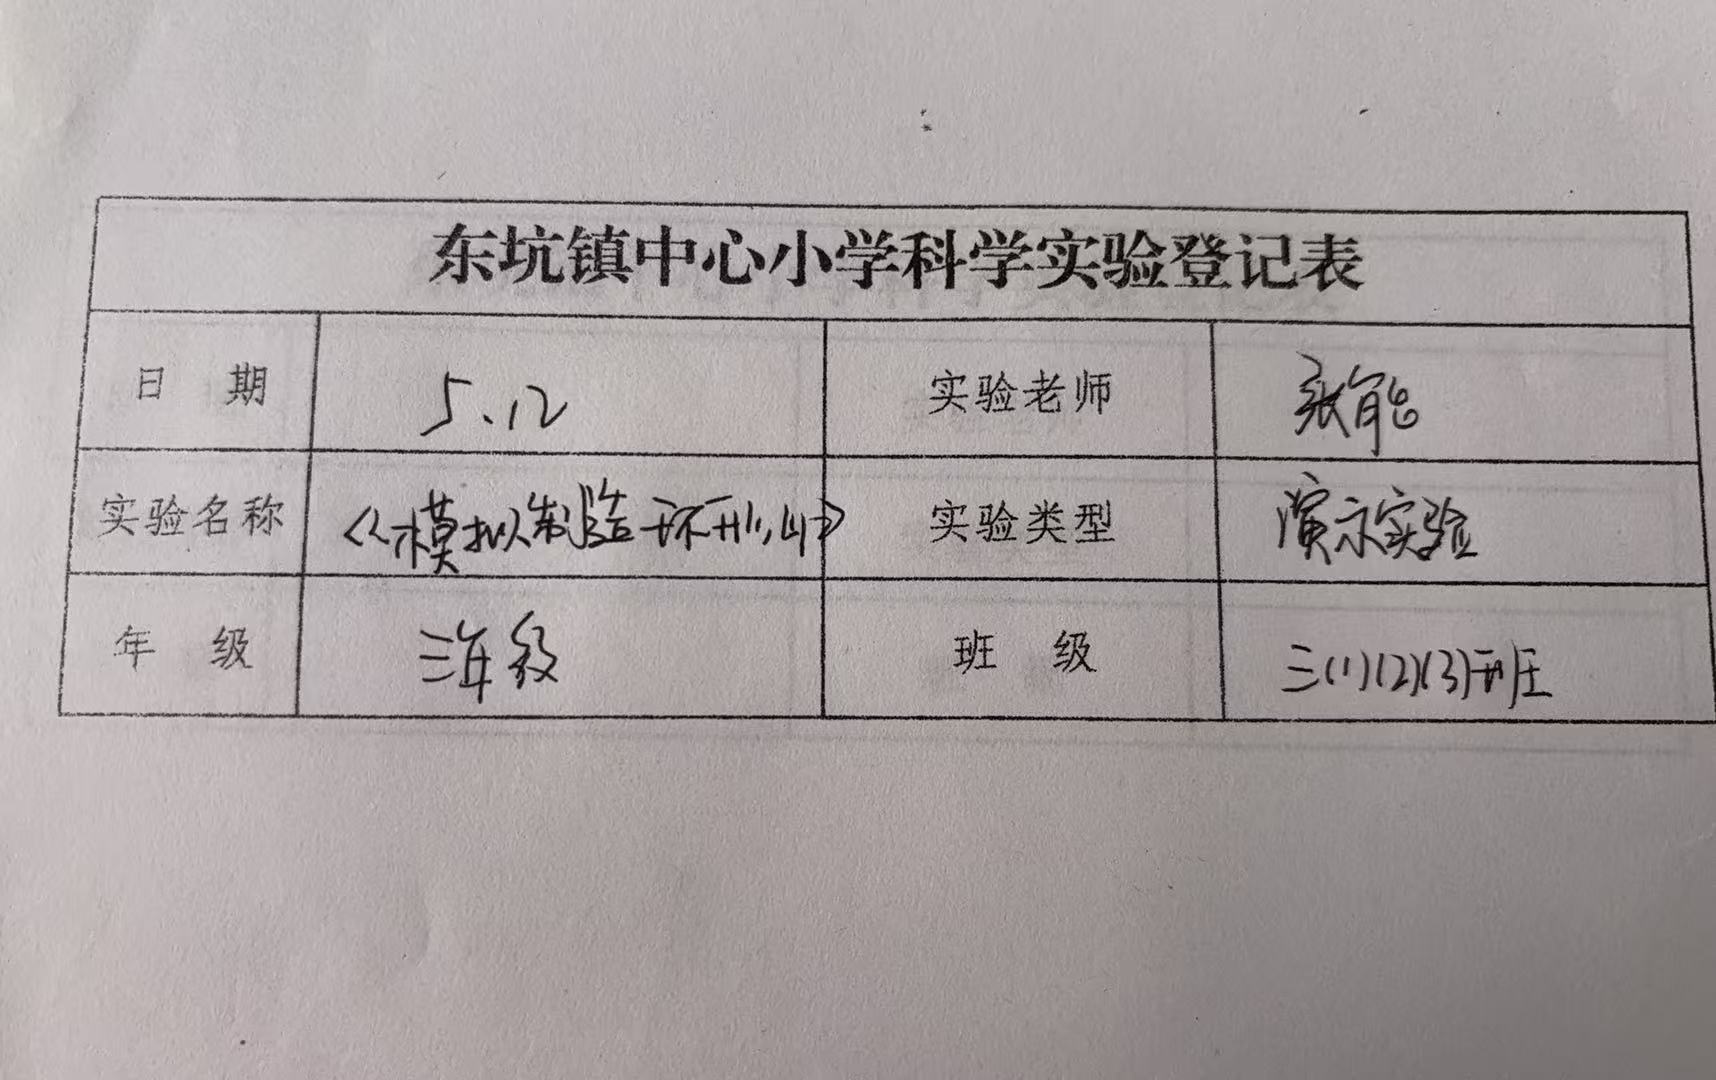 东坑镇中心小学科学实验登记表
日 期 5.12 实验老师 张能
实验名称 《模拟制造环形山》 实验类型 演示实验
年 级 三年级 班 级 三(1)(2)(3)班